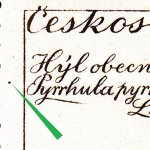 Českos
Hýl obecn
Pyrrhula pyr
L